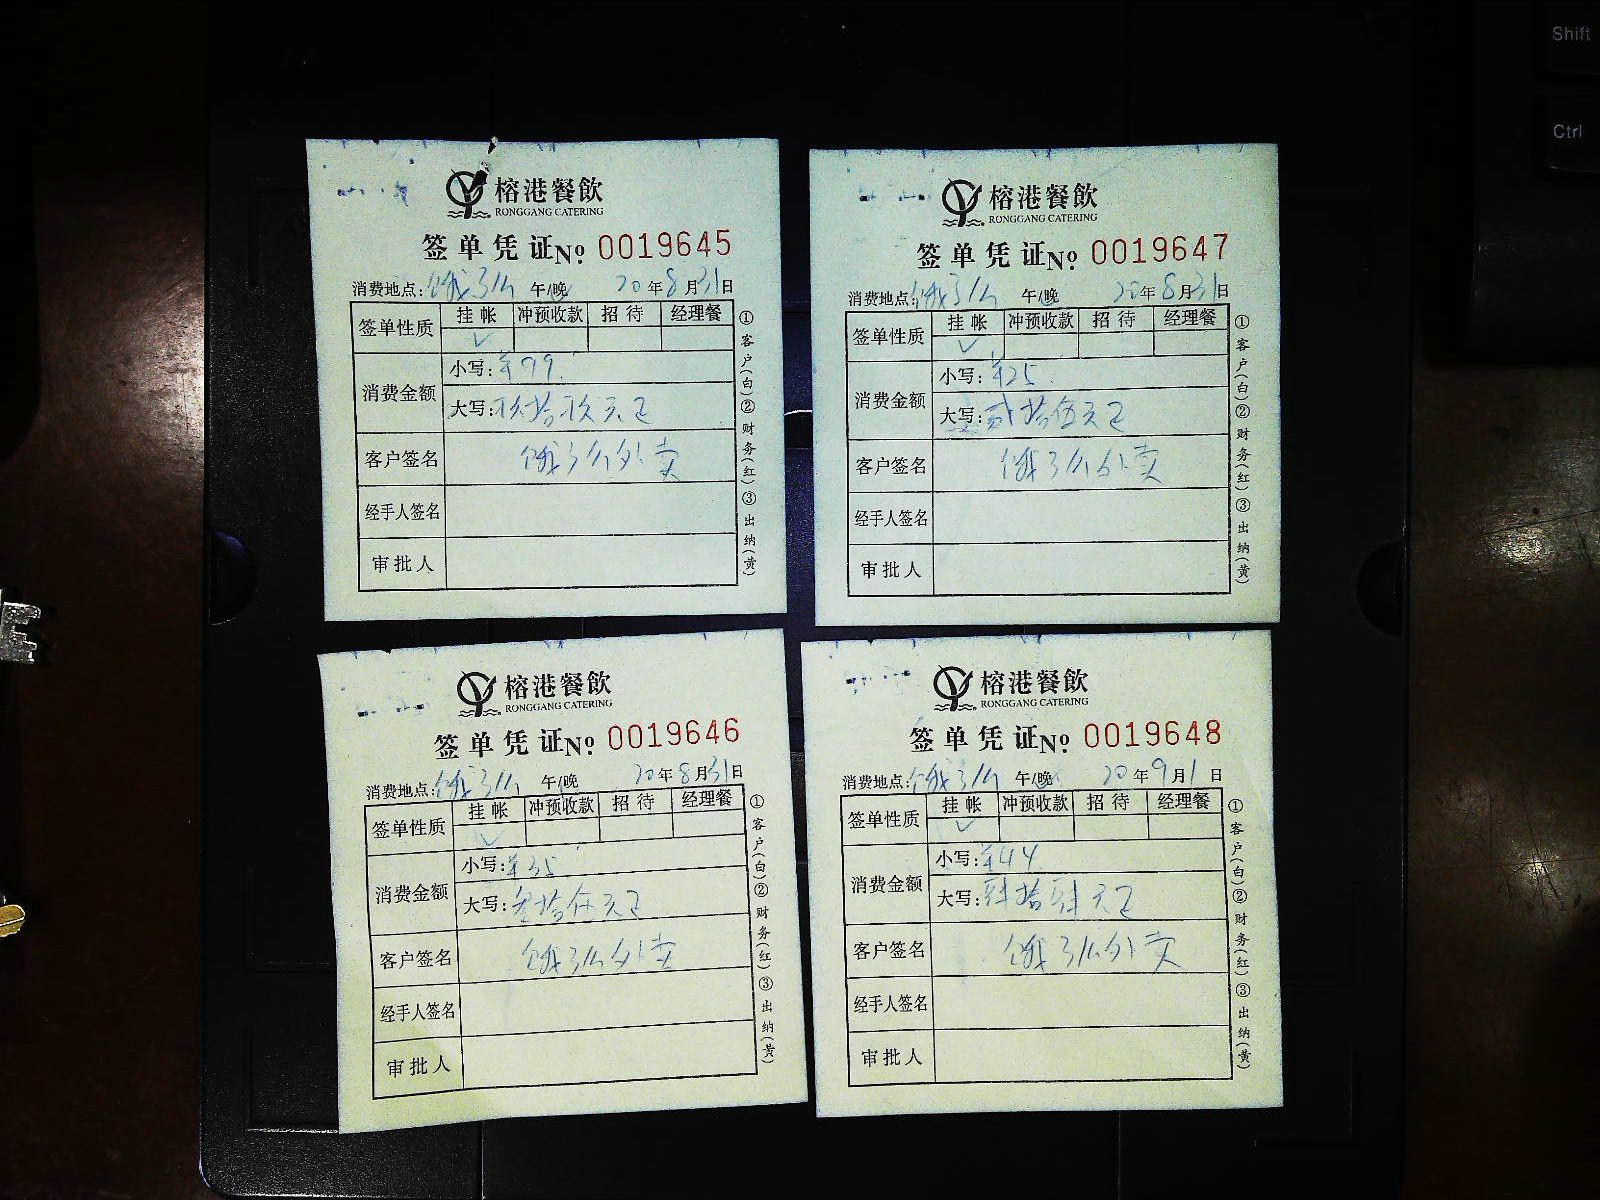 榕港餐飲
RONGGANG CATERING
签单凭证№ 0019645
消费地点:饿了么 午/晚 20年8月31日
签单性质 挂帐 冲预收款 招待 经理餐
✓
消费金额 小写:¥99.
大写:玖拾玖元正
客户签名 饿了么外卖
经手人签名
审批人
①客户(白)②财务(红)③出纳(黄)
榕港餐飲
RONGGANG CATERING
签单凭证№ 0019647
消费地点:饿了么 午/晚 20年8月31日
签单性质 挂帐 冲预收款 招待 经理餐
✓
消费金额 小写:¥25.
大写:贰拾伍元正
客户签名 饿了么外卖
经手人签名
审批人
①客户(白)②财务(红)③出纳(黄)
榕港餐飲
RONGGANG CATERING
签单凭证№ 0019646
消费地点:饿了么 午/晚 20年8月31日
签单性质 挂帐 冲预收款 招待 经理餐
✓
消费金额 小写:¥35
大写:叁拾伍元正
客户签名 饿了么外卖
经手人签名
审批人
①客户(白)②财务(红)③出纳(黄)
榕港餐飲
RONGGANG CATERING
签单凭证№ 0019648
消费地点:饿了么 午/晚 20年9月1日
签单性质 挂帐 冲预收款 招待 经理餐
✓
消费金额 小写:¥44
大写:肆拾肆元正
客户签名 饿了么外卖
经手人签名
审批人
①客户(白)②财务(红)③出纳(黄)
Shift
Ctrl